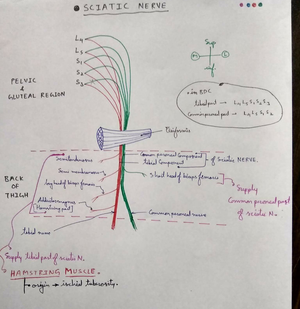 SCIATIC NERVE
L4
L5
S1
S2
S3
Sup
M
L
PELVIC
&
GLUTEAL REGION
in BDC
tibial part → L4 L5 S1 S2 S3
Common peroneal part → L4 L5 S1 S2
Piriformis
Semitendinosus
Common peroneal Component
tibial Component
of sciatic NERVE.
Semi membranosus
Short head of biceps femoris
long head of biceps femoris
BACK
OF
THIGH
Adductor magnus
(Hamstring part)
Supply
Common peroneal part
of sciatic N.
Common peroneal nerve
tibial nerve
Supply tibial part of sciatic N.
HAMSTRING MUSCLE.
origin → ischial tuberosity.